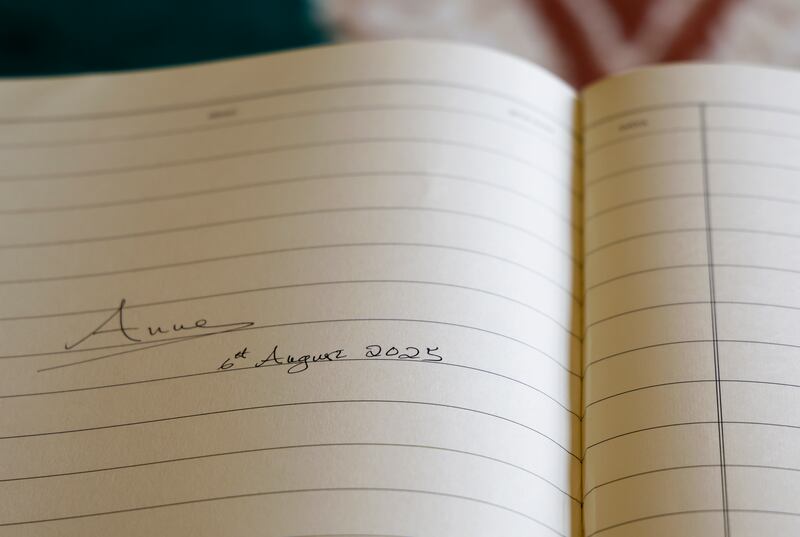 Anne
6st August 2025